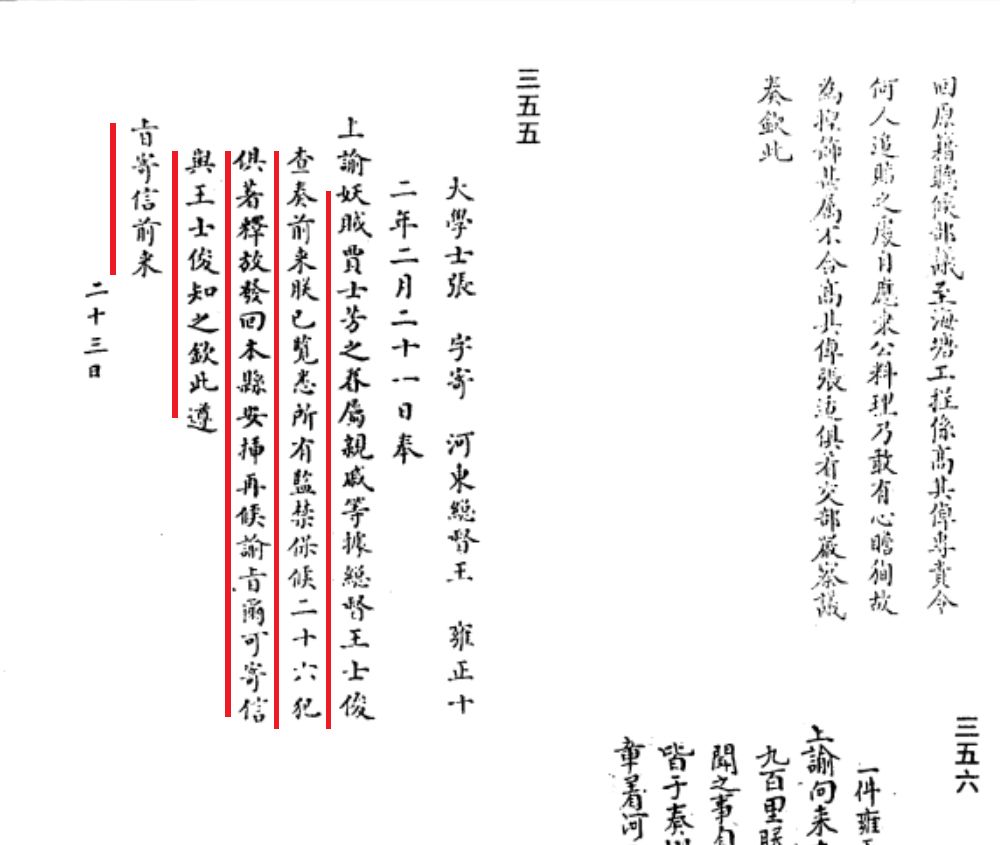 回原籍聽候部議至海塘工程係高其倬專責今
何人追賠之處自應秉公料理乃敢有心瞻徇故
為捏飾甚屬不合高其倬張 俱着交部嚴察議
奏欽此
三五五
大學士張 字寄 河東總督王 雍正十
二年二月二十一日奉
上諭妖賊賈士芳之眷屬親戚等據總督王士俊
查奏前来朕已覽悉所有監禁保候二十六犯
俱著釋放發回本縣安插再候諭旨爾可寄信
與王士俊知之欽此遵
旨寄信前来
二十三日
三五六
一件雍正
上諭向来
九百里
聞之事自
皆于奏
章着河